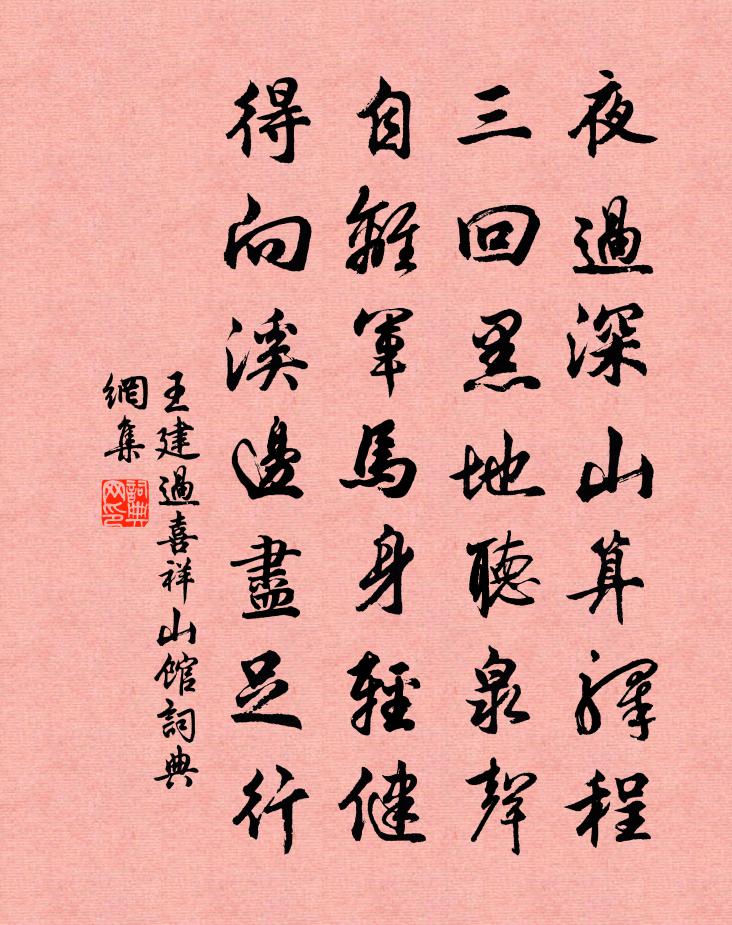 夜過深山算驛程
三回黑地聽泉聲
自離軍馬身輕健
得向溪邊盡足行
王建過喜祥山館詞典
網集
詞典網印